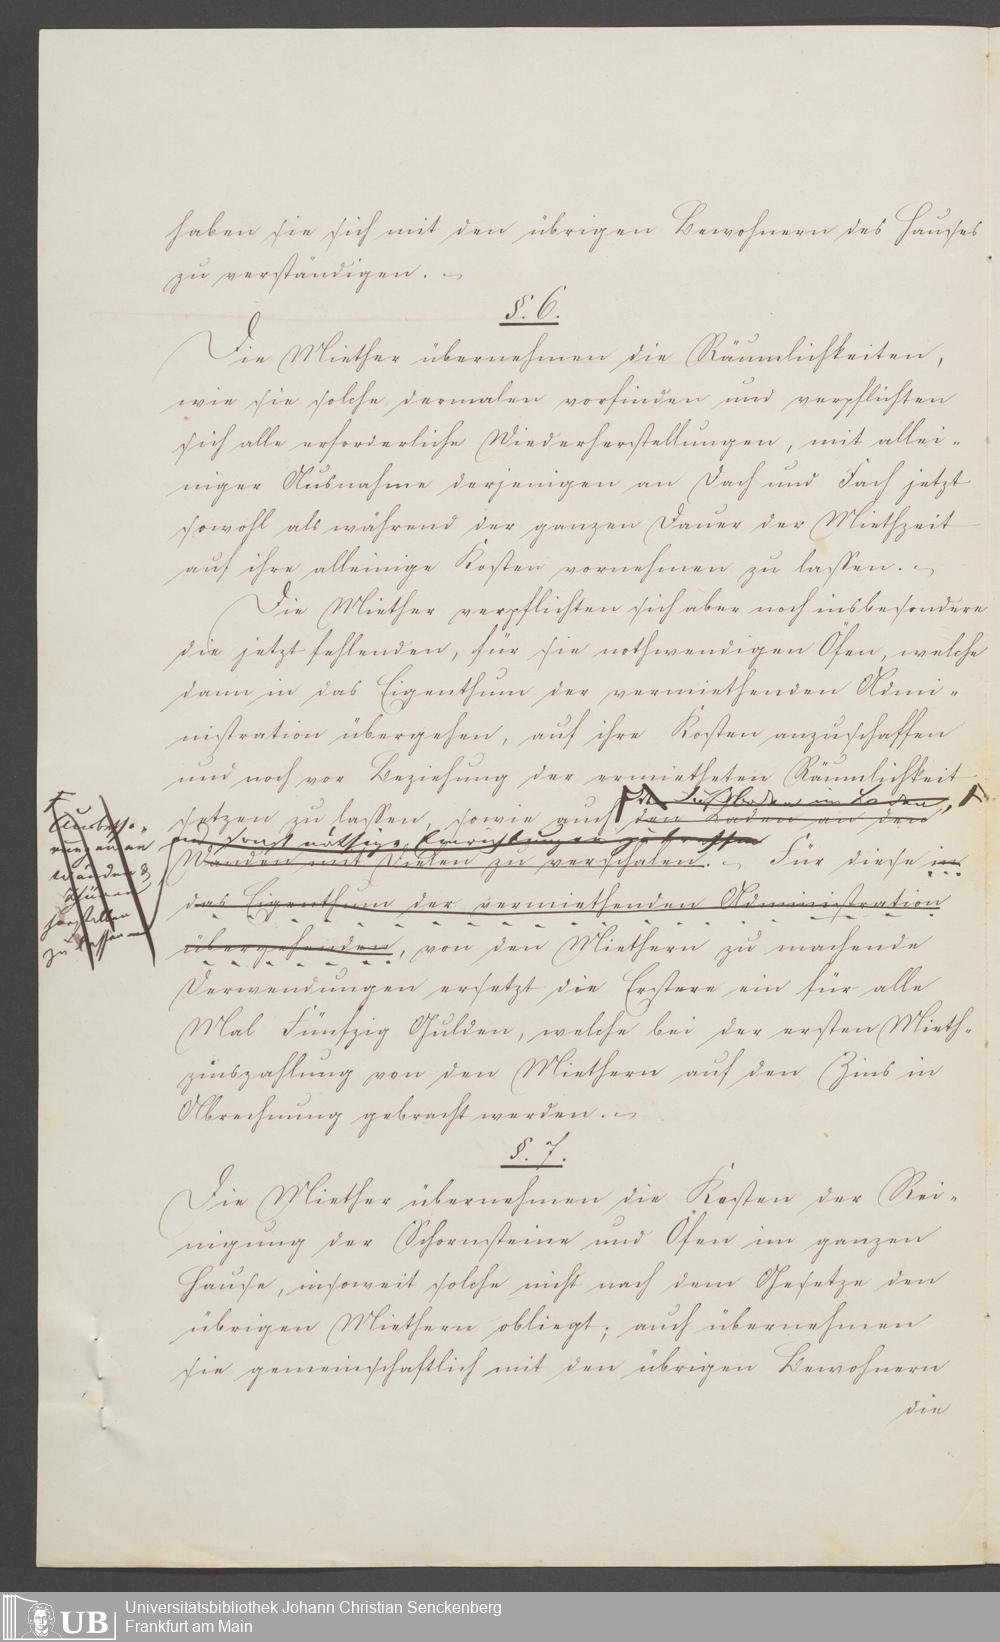 haben sie sich mit den übrigen Bewohnern des Hauses
zu verständigen. –
§. 6.
Die Miether übernehmen die Räumlichkeiten,
wie sie solche dermalen vorfinden und verpflichten
sich alle erforderliche Wiederherstellungen, mit allei-
niger Ausnahme derjenigen an Dach und Fach jetzt
sowohl als während der ganzen Dauer der Miethzeit
auf ihre alleinige Kosten vornehmen zu lassen. –
Die Miether verpflichten sich aber noch insbesondere
die jetzt fehlenden, für sie nothwendigen Öfen, welche
dann in das Eigenthum der vermiethenden Admi-
nistration übergehen, auf ihre Kosten anzuschaffen
und noch vor Beziehung der ermietheten Räumlichkeit
den Fußboden im Laden,
setzen zu lassen, sowie auch den Laden an den
und sonst nöthige Einrichtungen zu treffen
Wänden mit Dielen zu verschalen. – Für diese in
das Eigenthum der vermiethenden Administration
übergehenden, von den Miethern zu machende
Verwendungen ersetzt die Erstere ein für alle
Mal Fünfzig Gulden, welche bei der ersten Mieth-
zinszahlung von den Miethern auf den Zins in
Abrechnung gebracht werden. –
Ausbesse-
rungen an
Wänden &
Thüren
herstellen
zu lassen
§. 7.
Die Miether übernehmen die Kosten der Rei-
nigung der Schornsteine und Öfen im ganzen
Hause, insoweit solche nicht nach dem Gesetze den
übrigen Miethern obliegt; auch übernehmen
sie gemeinschaftlich mit den übrigen Bewohnern
die
UB
Universitätsbibliothek Johann Christian Senckenberg
Frankfurt am Main